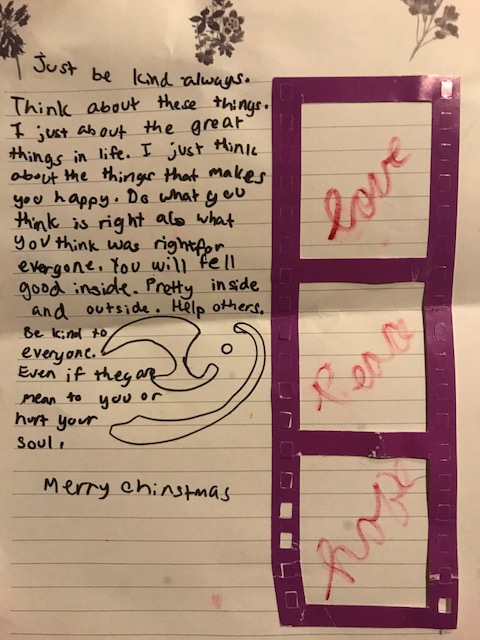 Just be kind always.
Think about these things.
I just about the great
things in life. I just think
about the things that makes
you happy. Do what you
think is right also what
you think was rightfor
everyone. You will fell
good inside. Pretty inside
and outside. Help others.
Be kind to
everyone.
Even if they are
mean to you or
hurt your
soul.
Merry chinstmas
love
Peace
hope